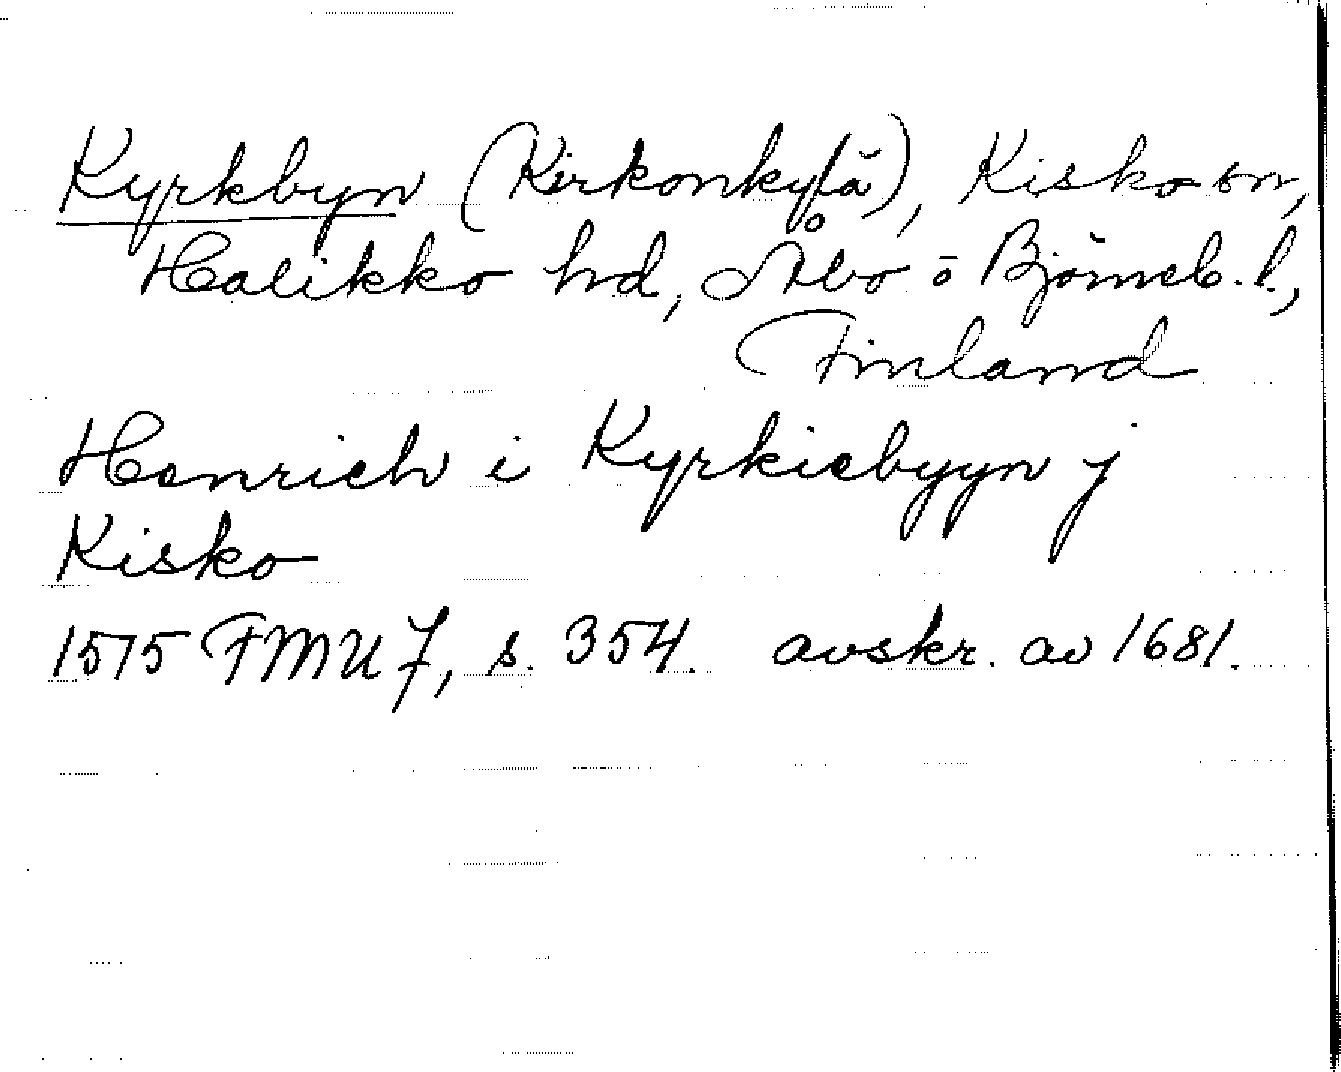 Kyrkbyn (Kirkonkylä), Kisko sn,
Halikko hd, Åbo o Björneb. l.,
Finland
Henrich i Kyrkiebyyn j
Kisko
1575 FMU 7, s. 354. avskr. av 1681.